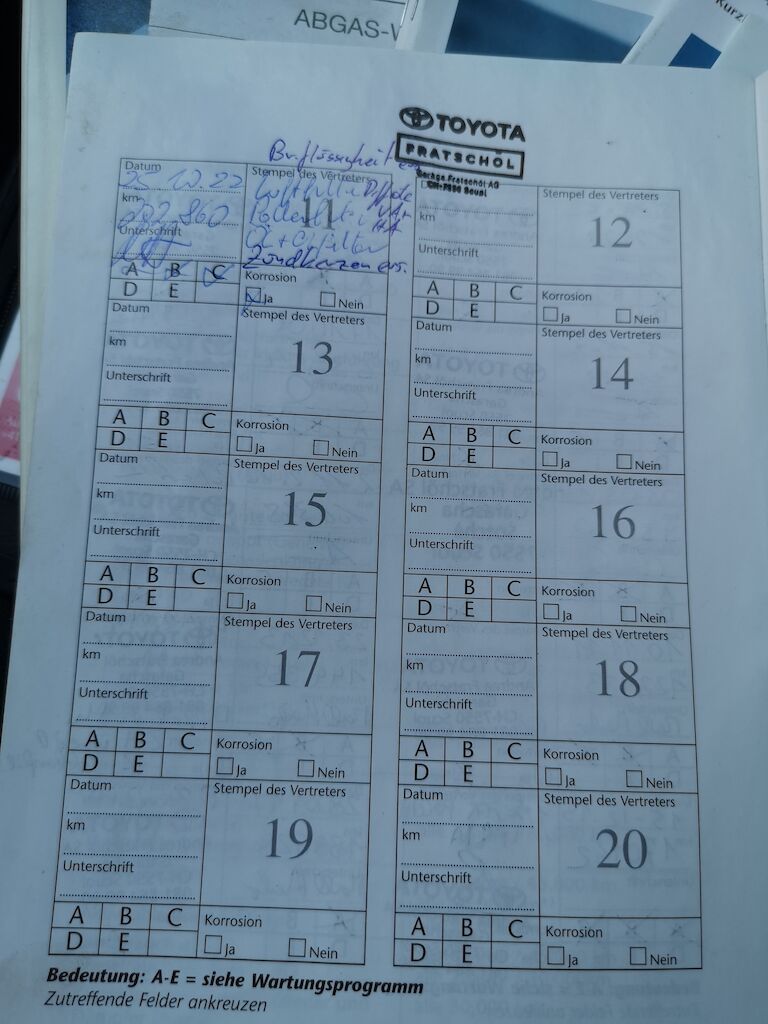 ABGAS-
Kurz
TOYOTA
FRATSCHÖL
Garage Fratschöl AG
Datum
25.10.22
km
202 860
Unterschrift
Stempel des Vertreters
11
Pollenfilter
Öl + Ölfilter
Zündkerzen ers.
A B C
D E
Korrosion
Ja Nein
Stempel des Vertreters
12
km
Unterschrift
A B C
D E
Korrosion
Ja Nein
Datum
km
Unterschrift
Stempel des Vertreters
13
A B C
D E
Korrosion
Ja Nein
Datum
km
Unterschrift
Stempel des Vertreters
14
A B C
D E
Korrosion
Ja Nein
Datum
km
Unterschrift
Stempel des Vertreters
15
A B C
D E
Korrosion
Ja Nein
Datum
km
Unterschrift
Stempel des Vertreters
16
A B C
D E
Korrosion
Ja Nein
Datum
km
Unterschrift
Stempel des Vertreters
17
A B C
D E
Korrosion
Ja Nein
Datum
km
Unterschrift
Stempel des Vertreters
18
A B C
D E
Korrosion
Ja Nein
Datum
km
Unterschrift
Stempel des Vertreters
19
A B C
D E
Korrosion
Ja Nein
Datum
km
Unterschrift
Stempel des Vertreters
20
A B C
D E
Korrosion
Ja Nein
Bedeutung: A-E = siehe Wartungsprogramm
Zutreffende Felder ankreuzen